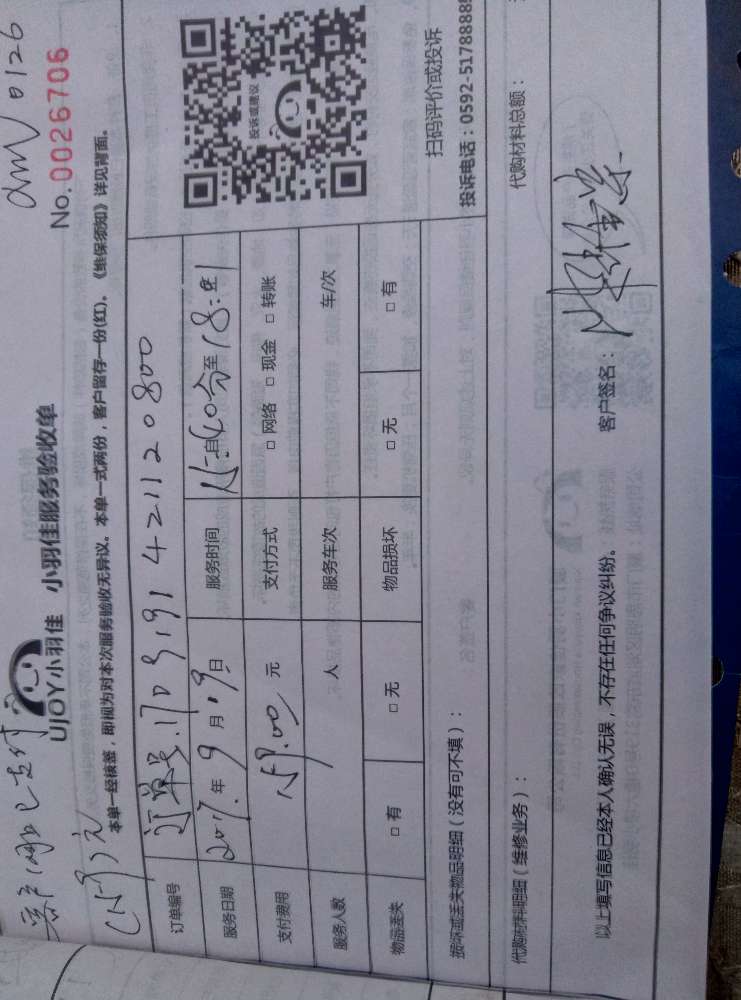 dmV 0126
No.0026706
客户(哪)已支付
(159)元
UJOY小羽佳 小羽佳服务验收单
本单一经核签，即视为对本次服务验收无异议。本单一式两份，客户留存一份(红)。《维保须知》详见背面。
订单编号 订单号1709191421120800
服务日期 2017年9月19日 服务时间 15:40分至18:41
支付费用 159.00元 支付方式 □ 网络 □ 现金 □ 转账
服务人数 人 服务车次 车/次
物品丢失 □ 有 □ 无 物品损坏 □ 无 □ 有
投诉或建议
扫码评价或投诉
投诉电话：0592-5178888
损坏或丢失物品明细（没有可不填）：
代购材料明细（维修业务）： 代购材料总额：
以上填写信息已经本人确认无误，不存在任何争议纠纷。 客户签名：